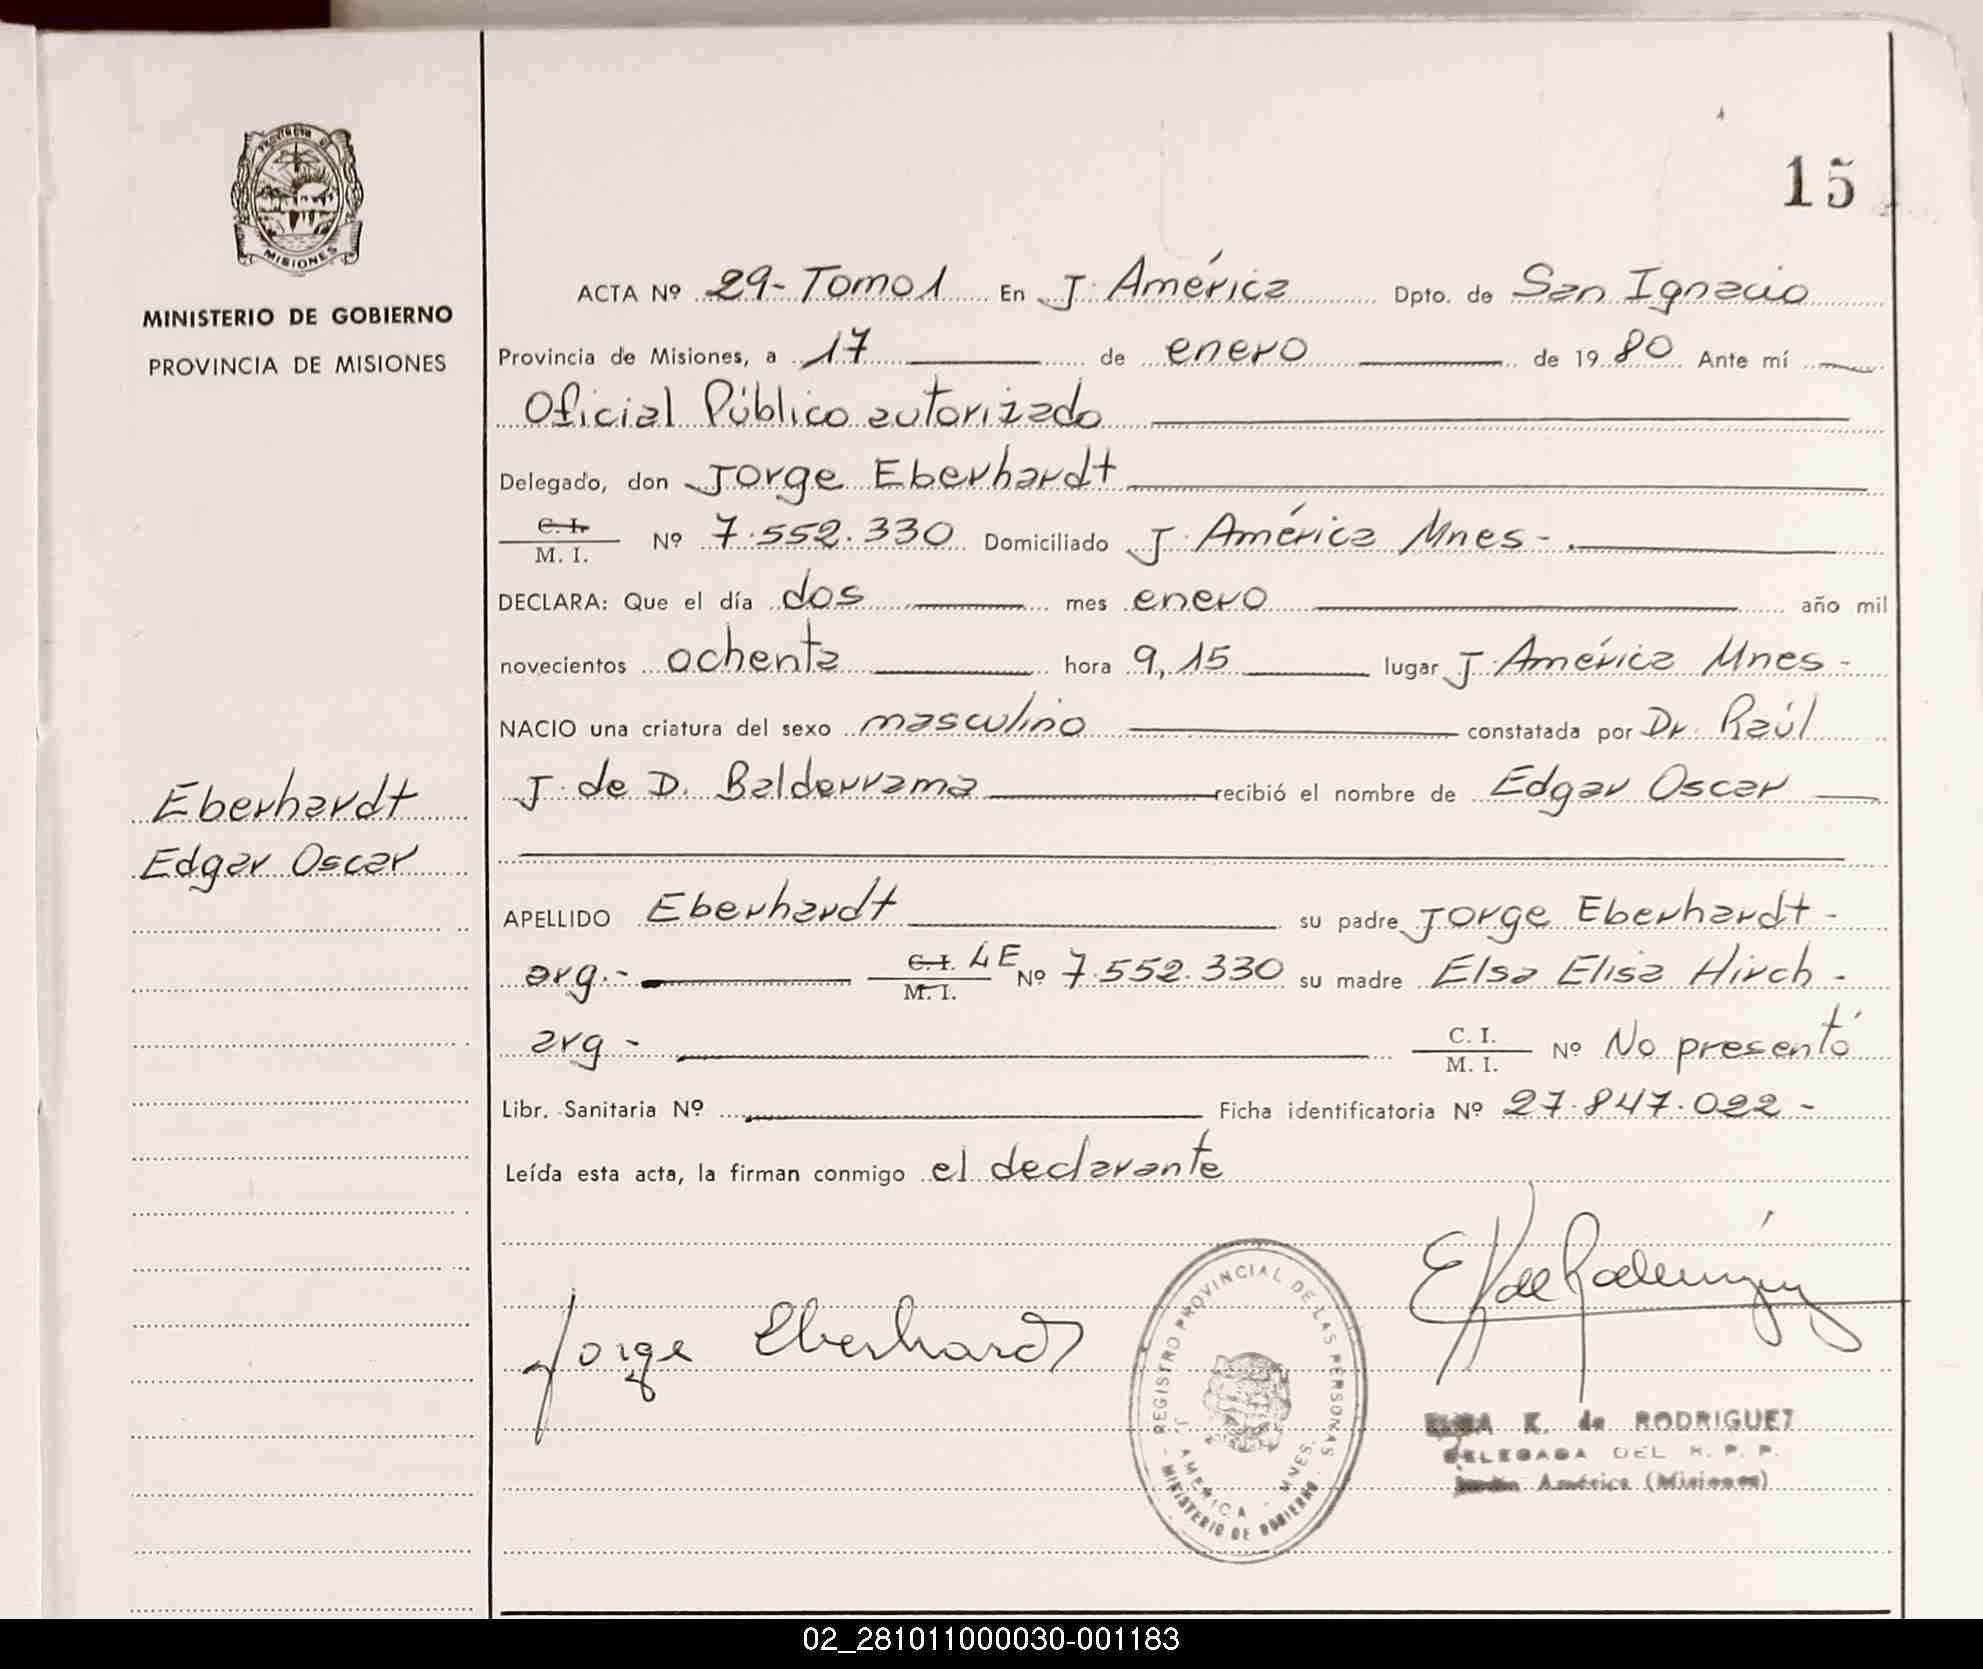 PROVINCIA DE
MISIONES
MINISTERIO DE GOBIERNO
PROVINCIA DE MISIONES
Eberhardt
Edgar Oscar
15
ACTA Nº 29-Tomo 1 En J. América Dpto. de San Ignacio
Provincia de Misiones, a 17 de enero de 1980 Ante mí
Oficial Público autorizado
Delegado, don Jorge Eberhardt
C. I.
M. I. Nº 7.552.330 Domiciliado J. América Mnes-.
DECLARA: Que el día dos mes enero año mil
novecientos ochenta hora 9,15 lugar J. América Mnes-
NACIO una criatura del sexo masculino constatada por Dr. Raúl
J. de D. Balderrama recibió el nombre de Edgar Oscar
APELLIDO Eberhardt su padre Jorge Eberhardt-
arg.- C. I. M. I. LE Nº 7.552.330 su madre Elsa Elisa Hirch-
arg- C. I. M. I. Nº No presentó
Libr. Sanitaria Nº Ficha identificatoria Nº 27.847.022-
Leída esta acta, la firman conmigo el declarante
Jorge Eberhardt
REGISTRO PROVINCIAL DE LAS PERSONAS
J. AMERICA - MNES.
MINISTERIO DE GOBIERNO
E K de Rodríguez
K. de RODRIGUEZ
DELEGADA DEL R. P. P.
Jardín América (Misiones)
02_281011000030-001183